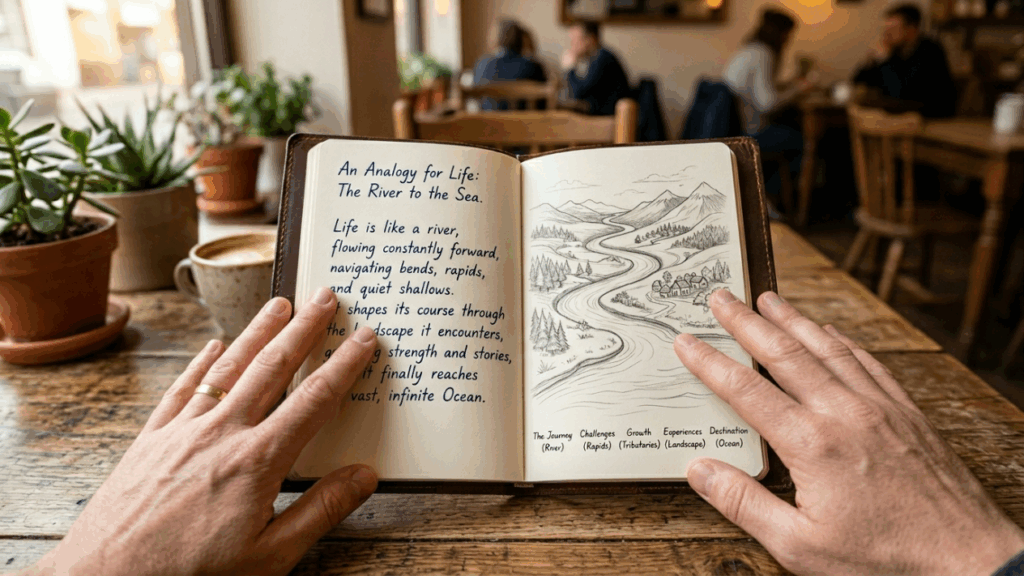 An Analogy for Life:
The River to the Sea.
Life is like a river,
flowing constantly forward,
navigating bends, rapids,
and quiet shallows.
shapes its course through
the landscape it encounters,
strength and stories,
it finally reaches
vast, infinite Ocean.
The Journey Challenges Growth Experiences Destination
(River) (Rapids) (Tributaries) (Landscape) (Ocean)